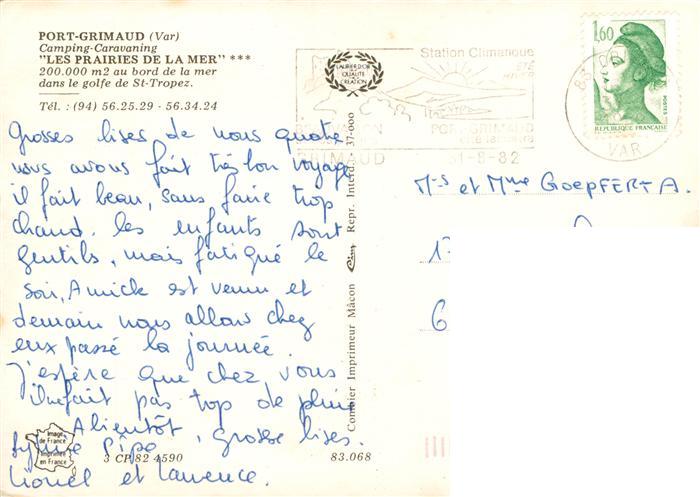 PORT-GRIMAUD (Var)
Camping-Caravaning
"LES PRAIRIES DE LA MER" ***
200.000 m2 au bord de la mer
dans le golfe de St-Tropez.
Tél. : (94) 56.25.29 - 56.34.24
Grosses bises de nous quatre
nous avons fait très bon voyage
il fait beau, sans faire trop
chaud. les enfants sont
gentils, mais fatigué le
soir, Amick est venu et
demain nous allons chez
eux passé la journée.
J'espère que chez vous
il fait pas top de pluie
A bientôt, grosse bises.
Sylvie Pipo
Lionel et Laurence.
Image de France
Imprimée en France
3 CP 82 4590
83.068
Combier Imprimeur Mâcon Cim Repr. Interd. 37-000
LAURIER D'OR DE LA QUALITE CREATION
Station Climatique
ÉTÉ
HIVER
PORT-GRIMAUD
GRIMAUD
31-8-82
83
VAR
1,60
POSTES
REPUBLIQUE FRANÇAISE
Mrs et Mme GOEPFERT A.
17
6